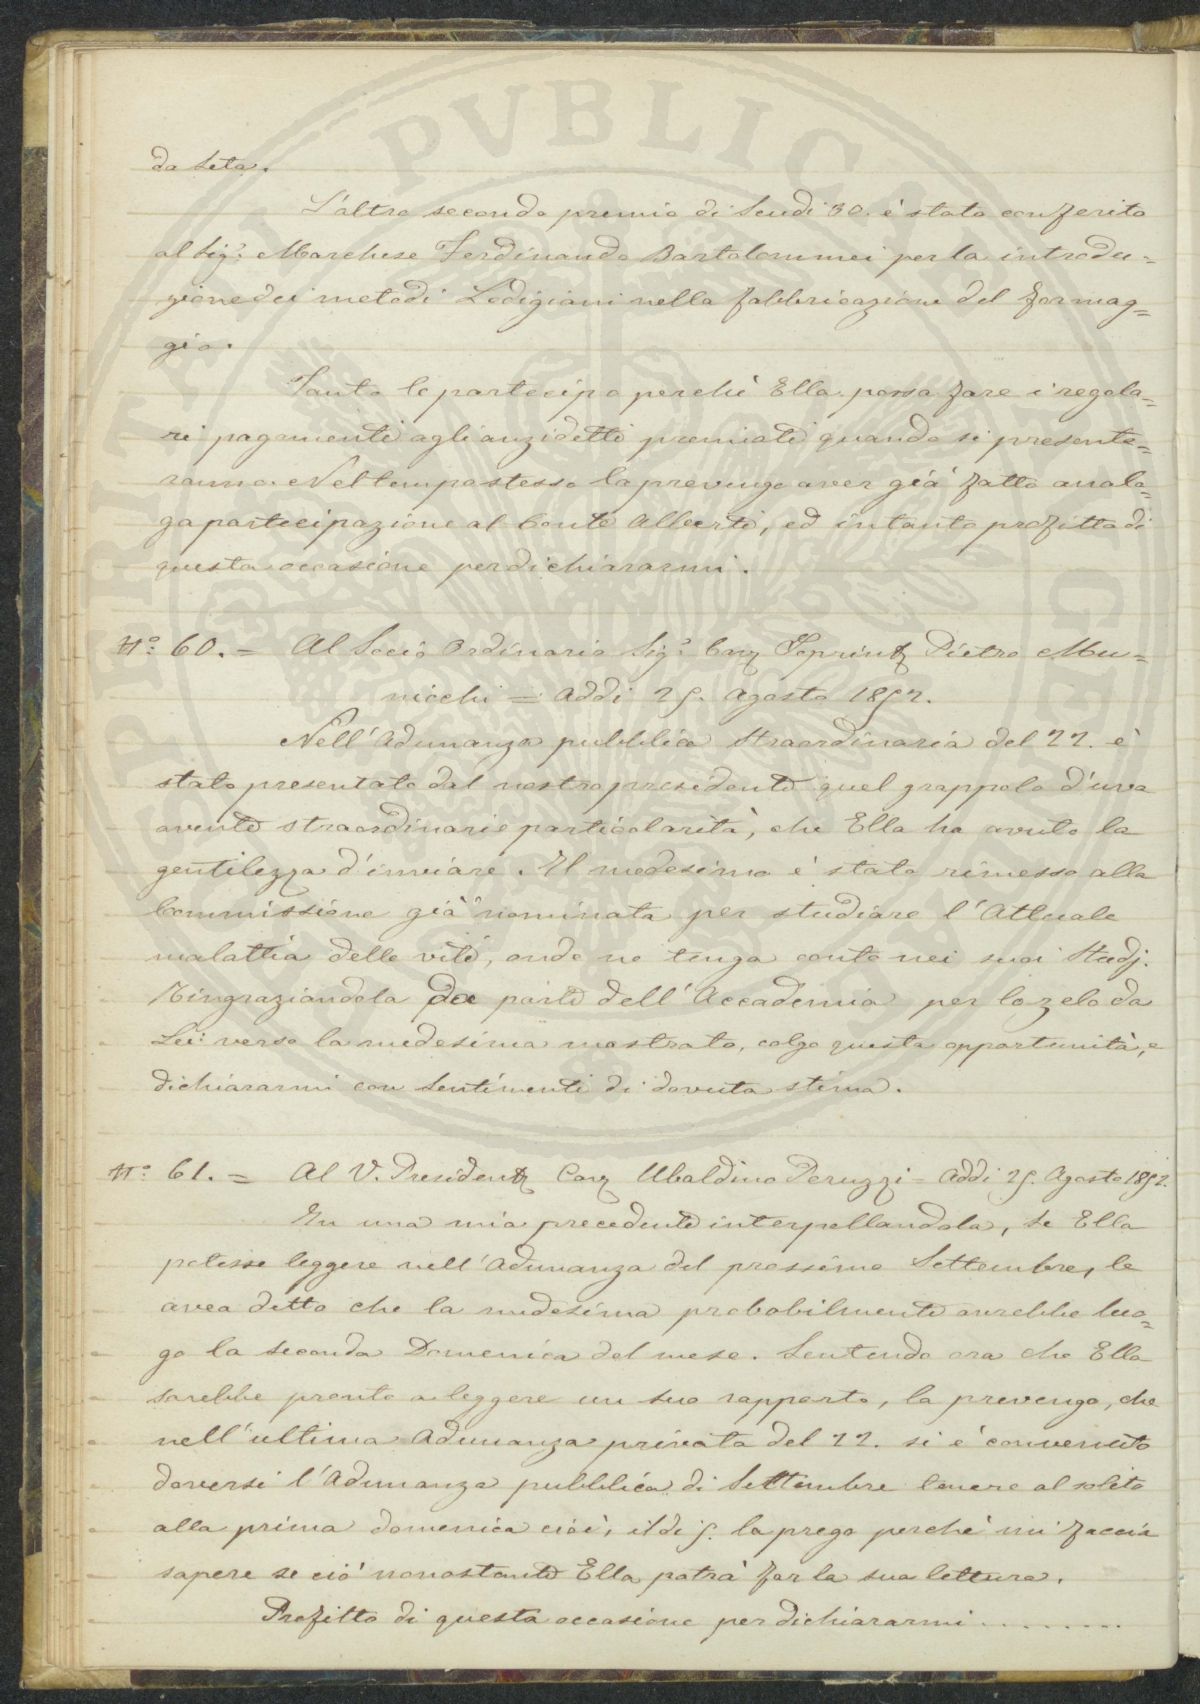 da Seta.
L'altro secondo premio di Scudi 30. è stato conferito
al Sig.r Marchese Ferdinando Bartolommei per la introdu=
zione dei metodi Lodigiani nella fabbricazione del formag=
gio.
Tanto le partecipo perchè Ella possa fare i regola=
ri pagamenti agli anzidetti premiati quando si presente=
ranno. Nel tempo stesso la prevengo aver già fatto analo=
ga partecipazione al Conte Alberti, ed intanto profitto di
questa occasione per dichiararmi.
N.o 60. = Al Socio Ordinario Sig.r Cav. Pietro Mu=
nicchi = Addi 25. Agosto 1852.
Nell'Adunanza pubblica straordinaria del 22. è
stato presentato dal nostro presidente quel grappolo d'uva
avente straordinarie particolarità, che Ella ha avuto la
gentilezza d'inviare. Il medesimo è stato rimesso alla
Commissione già nominata per studiare l'Attuale
malattia delle viti, onde ne tenga conto nei suoi Studj.
Ringraziandola da parte dell'Accademia per lo zelo da
Lei verso la medesima mostrato, colgo questa opportunità, e
dichiararmi con Sentimenti di dovuta stima.
N.o 61. = Al V. Presidente Cav. Ubaldino Peruzzi = Addi 25. Agosto 1852.
In una mia precedente interpellandola, se Ella
potesse leggere nell'Adunanza del prossimo Settembre, le
avea detto che la medesima probabilmente avrebbe luo=
go la seconda Domenica del mese. Sentendo ora che Ella
sarebbe pronto a leggere un suo rapporto, la prevengo, che
nell'ultima Adunanza privata del 22. si è convenuto
doversi l'Adunanza pubblica di Settembre tenere al solito
alla prima domenica cioè, il dì 5. la prego perchè mi faccia
sapere se ciò nonostante Ella potrà far la sua lettura.
Profitto di questa occasione per dichiararmi .........
PUBLICAE